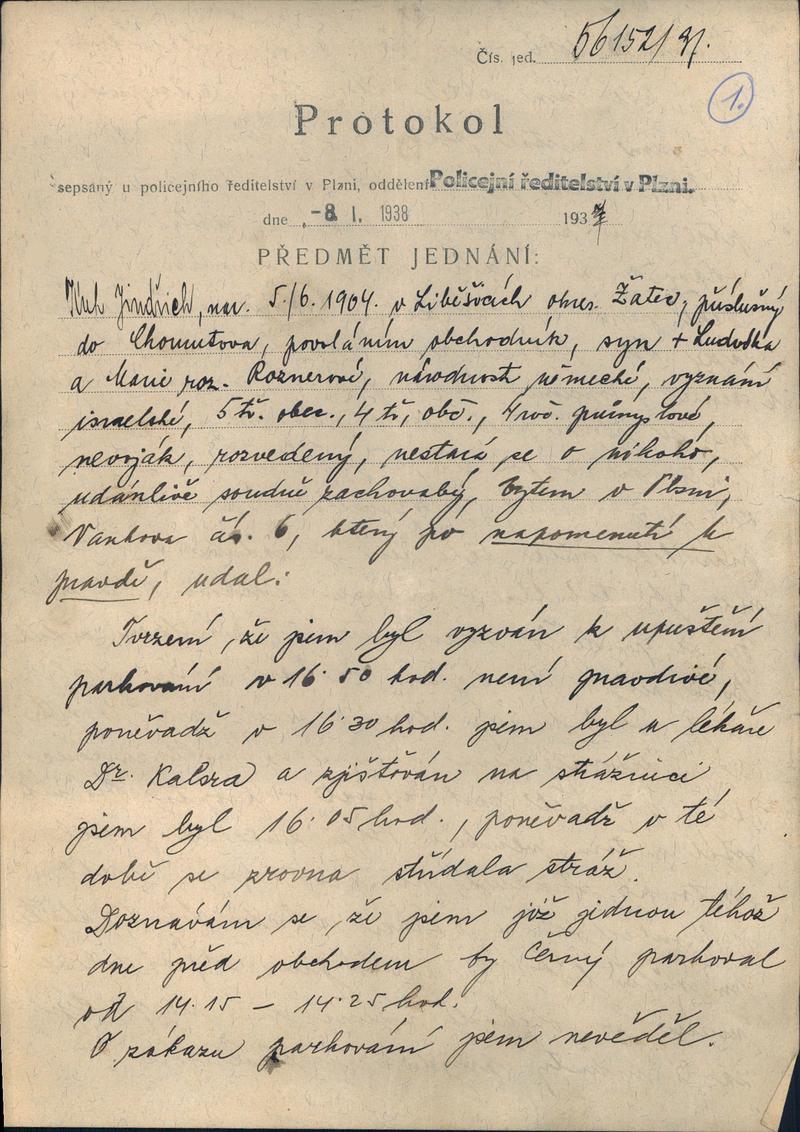 Čís. jed. 56152/37.
1.
Protokol
sepsaný u policejního ředitelství v Plzni, oddělení Policejní ředitelství v Plzni.
dne -8 I. 1938 193
PŘEDMĚT JEDNÁNÍ:
Jindřich, nar. 5./6. 1904. v Liběšicích okres. Žatec, příslušný
do Chomutova, povoláním obchodník, syn + Ludvíka
a Marie roz. Roznerové, národnost německé, vyznání
israelské, 5 tř. obec., 4 tř. obč., 4 roč. průmyslové,
nevoják, rozvedený, nestará se o nikoho,
udánlivě soudně zachovalý, bytem v Plzni,
Vaňkova čís. 6, který po napomenutí k
pravdě, udal:
Tvrzení, že jsem byl vyzván k upuštění
parkování v 16·50 hod. není pravdivé,
poněvadž v 16·30 hod. jsem byl u lékaře
Dr. a zjišťován na strážnici
jsem byl 16·05 hod., poněvadž v té
době se zrovna střídala stráž.
Doznávám se, že jsem již jednou téhož
dne před obchodem fy Černý parkoval
od 14·15 – 14·25 hod.
O zákazu parkování jsem nevěděl.